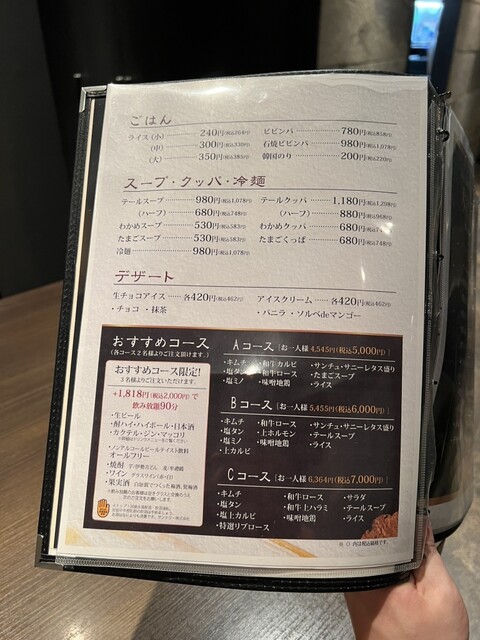 ごはん
ライス（小）……240円(税込264円)
（中）……300円(税込330円)
（大）……350円(税込385円)
ビビンバ……780円(税込858円)
石焼ビビンバ……980円(税込1,078円)
韓国のり……200円(税込220円)
スープ・クッパ・冷麺
テールスープ……980円(税込1,078円)
（ハーフ）……680円(税込748円)
わかめスープ……530円(税込583円)
たまごスープ……530円(税込583円)
冷麺……980円(税込1,078円)
テールクッパ……1,180円(税込1,298円)
（ハーフ）……880円(税込968円)
わかめクッパ……680円
たまごくっぱ……680円(税込748円)
デザート
生チョコアイス……各420円(税込462円)
・チョコ ・抹茶
アイスクリーム……各420円(税込462円)
・バニラ ・ソルベdeマンゴー
おすすめコース
(各コース2名様よりご注文頂けます。)
おすすめコース限定!
3名様よりご注文いただけます。
+1,818円(税込2,000円)で
飲み放題90分
・生ビール
・酎ハイ・ハイボール・日本酒
・カクテル・ジン・マッコリ
・ノンアルコールビールテイスト飲料
オールフリー
・焼酎
・ワイン グラスワイン(赤・白)
・果実酒 自家製でつくった梅酒、黒梅酒
Aコース [お一人様 4,545円(税込5,000円)]
・キムチ
・塩タン
・塩ミノ
・和牛カルビ
・和牛ロース
・味噌地鶏
・サンチュ・サニーレタス盛り
・たまごスープ
・ライス
Bコース [お一人様 5,455円(税込6,000円)]
・キムチ
・塩タン
・塩ミノ
・上カルビ
・和牛ロース
・上ホルモン
・味噌地鶏
・サンチュ・サニーレタス盛り
・テールスープ
・ライス
Cコース [お一人様 6,364円(税込7,000円)]
・キムチ
・塩タン
・塩上カルビ
・特選リブロース
・和牛ロース
・和牛上ハラミ
・味噌地鶏
・サラダ
・テールスープ
・ライス
※( )内は税込価格です。